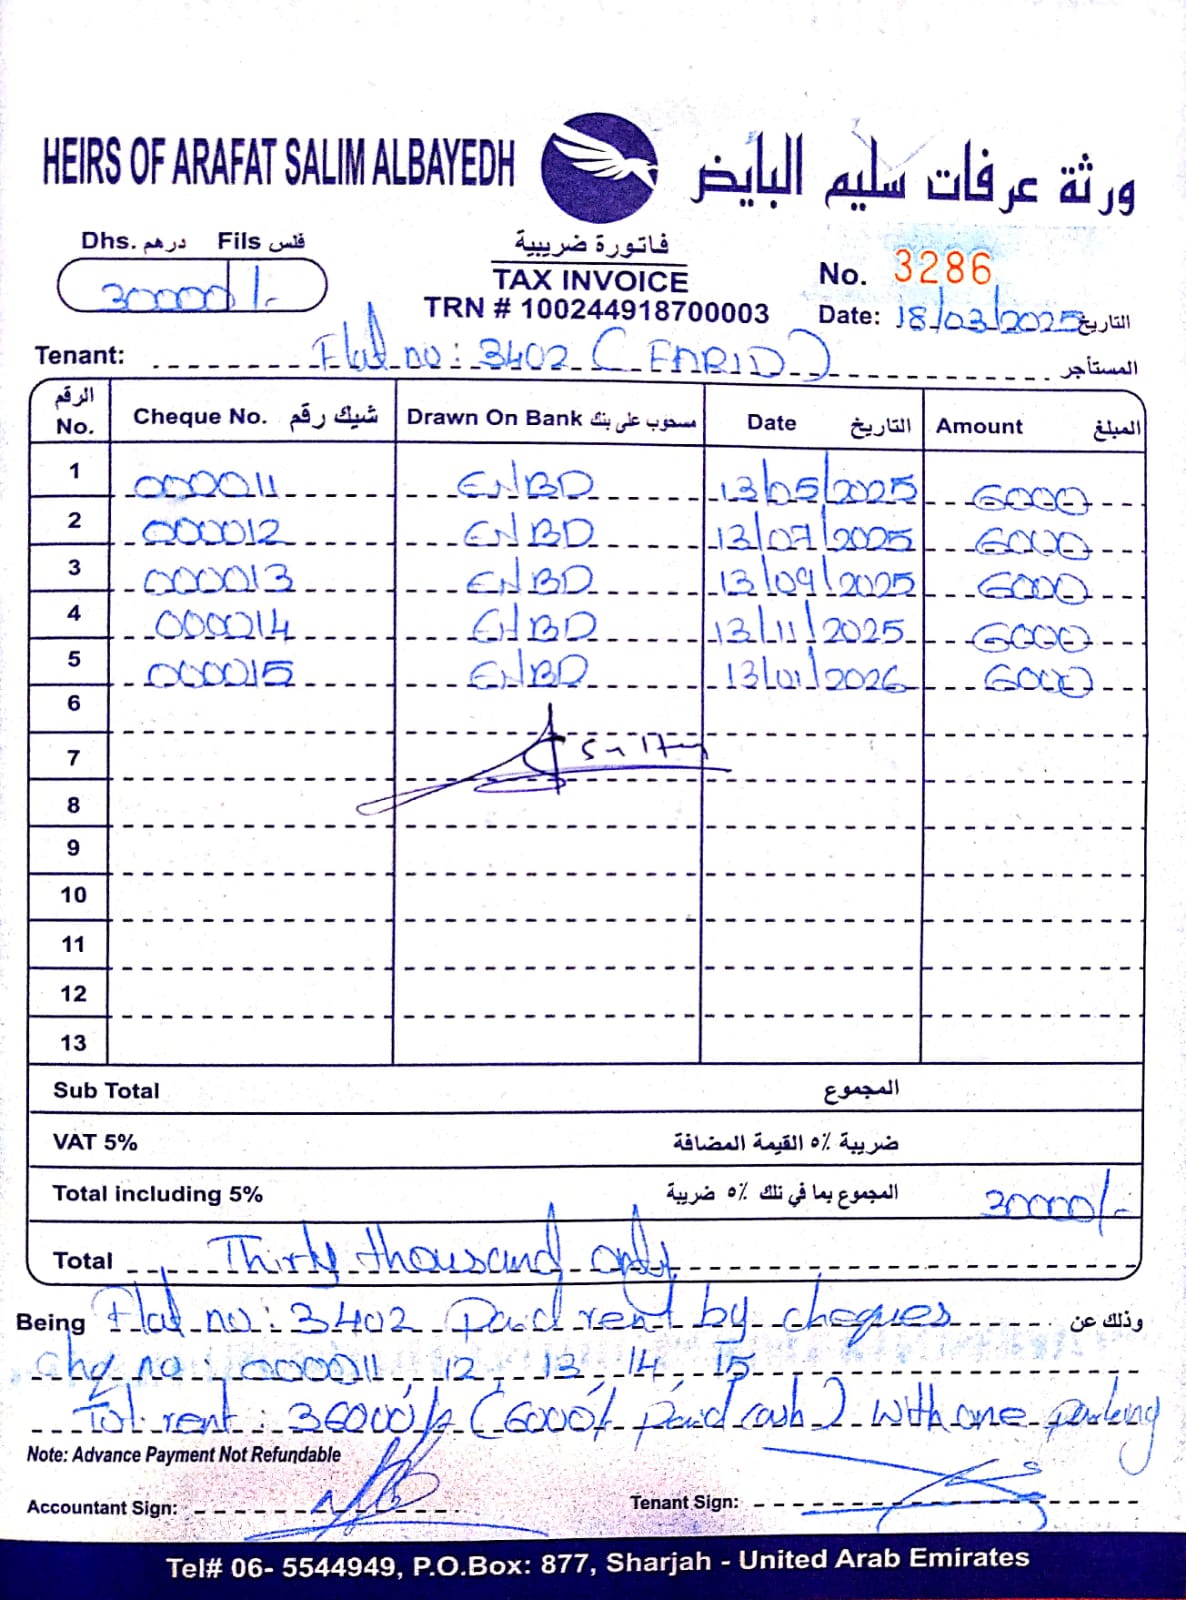 HEIRS OF ARAFAT SALIM ALBAYEDH ورثة عرفات سليم البايض
Dhs. درهم Fils فلس
30000 /-
فاتورة ضريبية
TAX INVOICE
TRN # 100244918700003
No. 3286
Date: 18/03/2025 التاريخ
Tenant: Flat no: 3402 (FARID) المستأجر
الرقم No. Cheque No. شيك رقم Drawn On Bank مسحوب على بنك Date التاريخ Amount المبلغ
1 000011 ENBD 13/05/2025 6000
2 000012 ENBD 13/07/2025 6000
3 000013 ENBD 13/09/2025 6000
4 000014 ENBD 13/11/2025 6000
5 000015 ENBD 13/01/2026 6000
6
7
8
9
10
11
12
13
Sub Total المجموع
VAT 5% ضريبة ٥٪ القيمة المضافة
Total including 5% المجموع بما في تلك ٥٪ ضريبة 30000/-
Total Thirty thousand only
Being Flat no: 3402 Paid rent by cheques وذلك عن
Chq no: 000011, 12, 13, 14, 15
Tot. rent: 36000/- (6000/- paid cash) with one parking
Note: Advance Payment Not Refundable
Accountant Sign: Tenant Sign:
Tel# 06- 5544949, P.O.Box: 877, Sharjah - United Arab Emirates